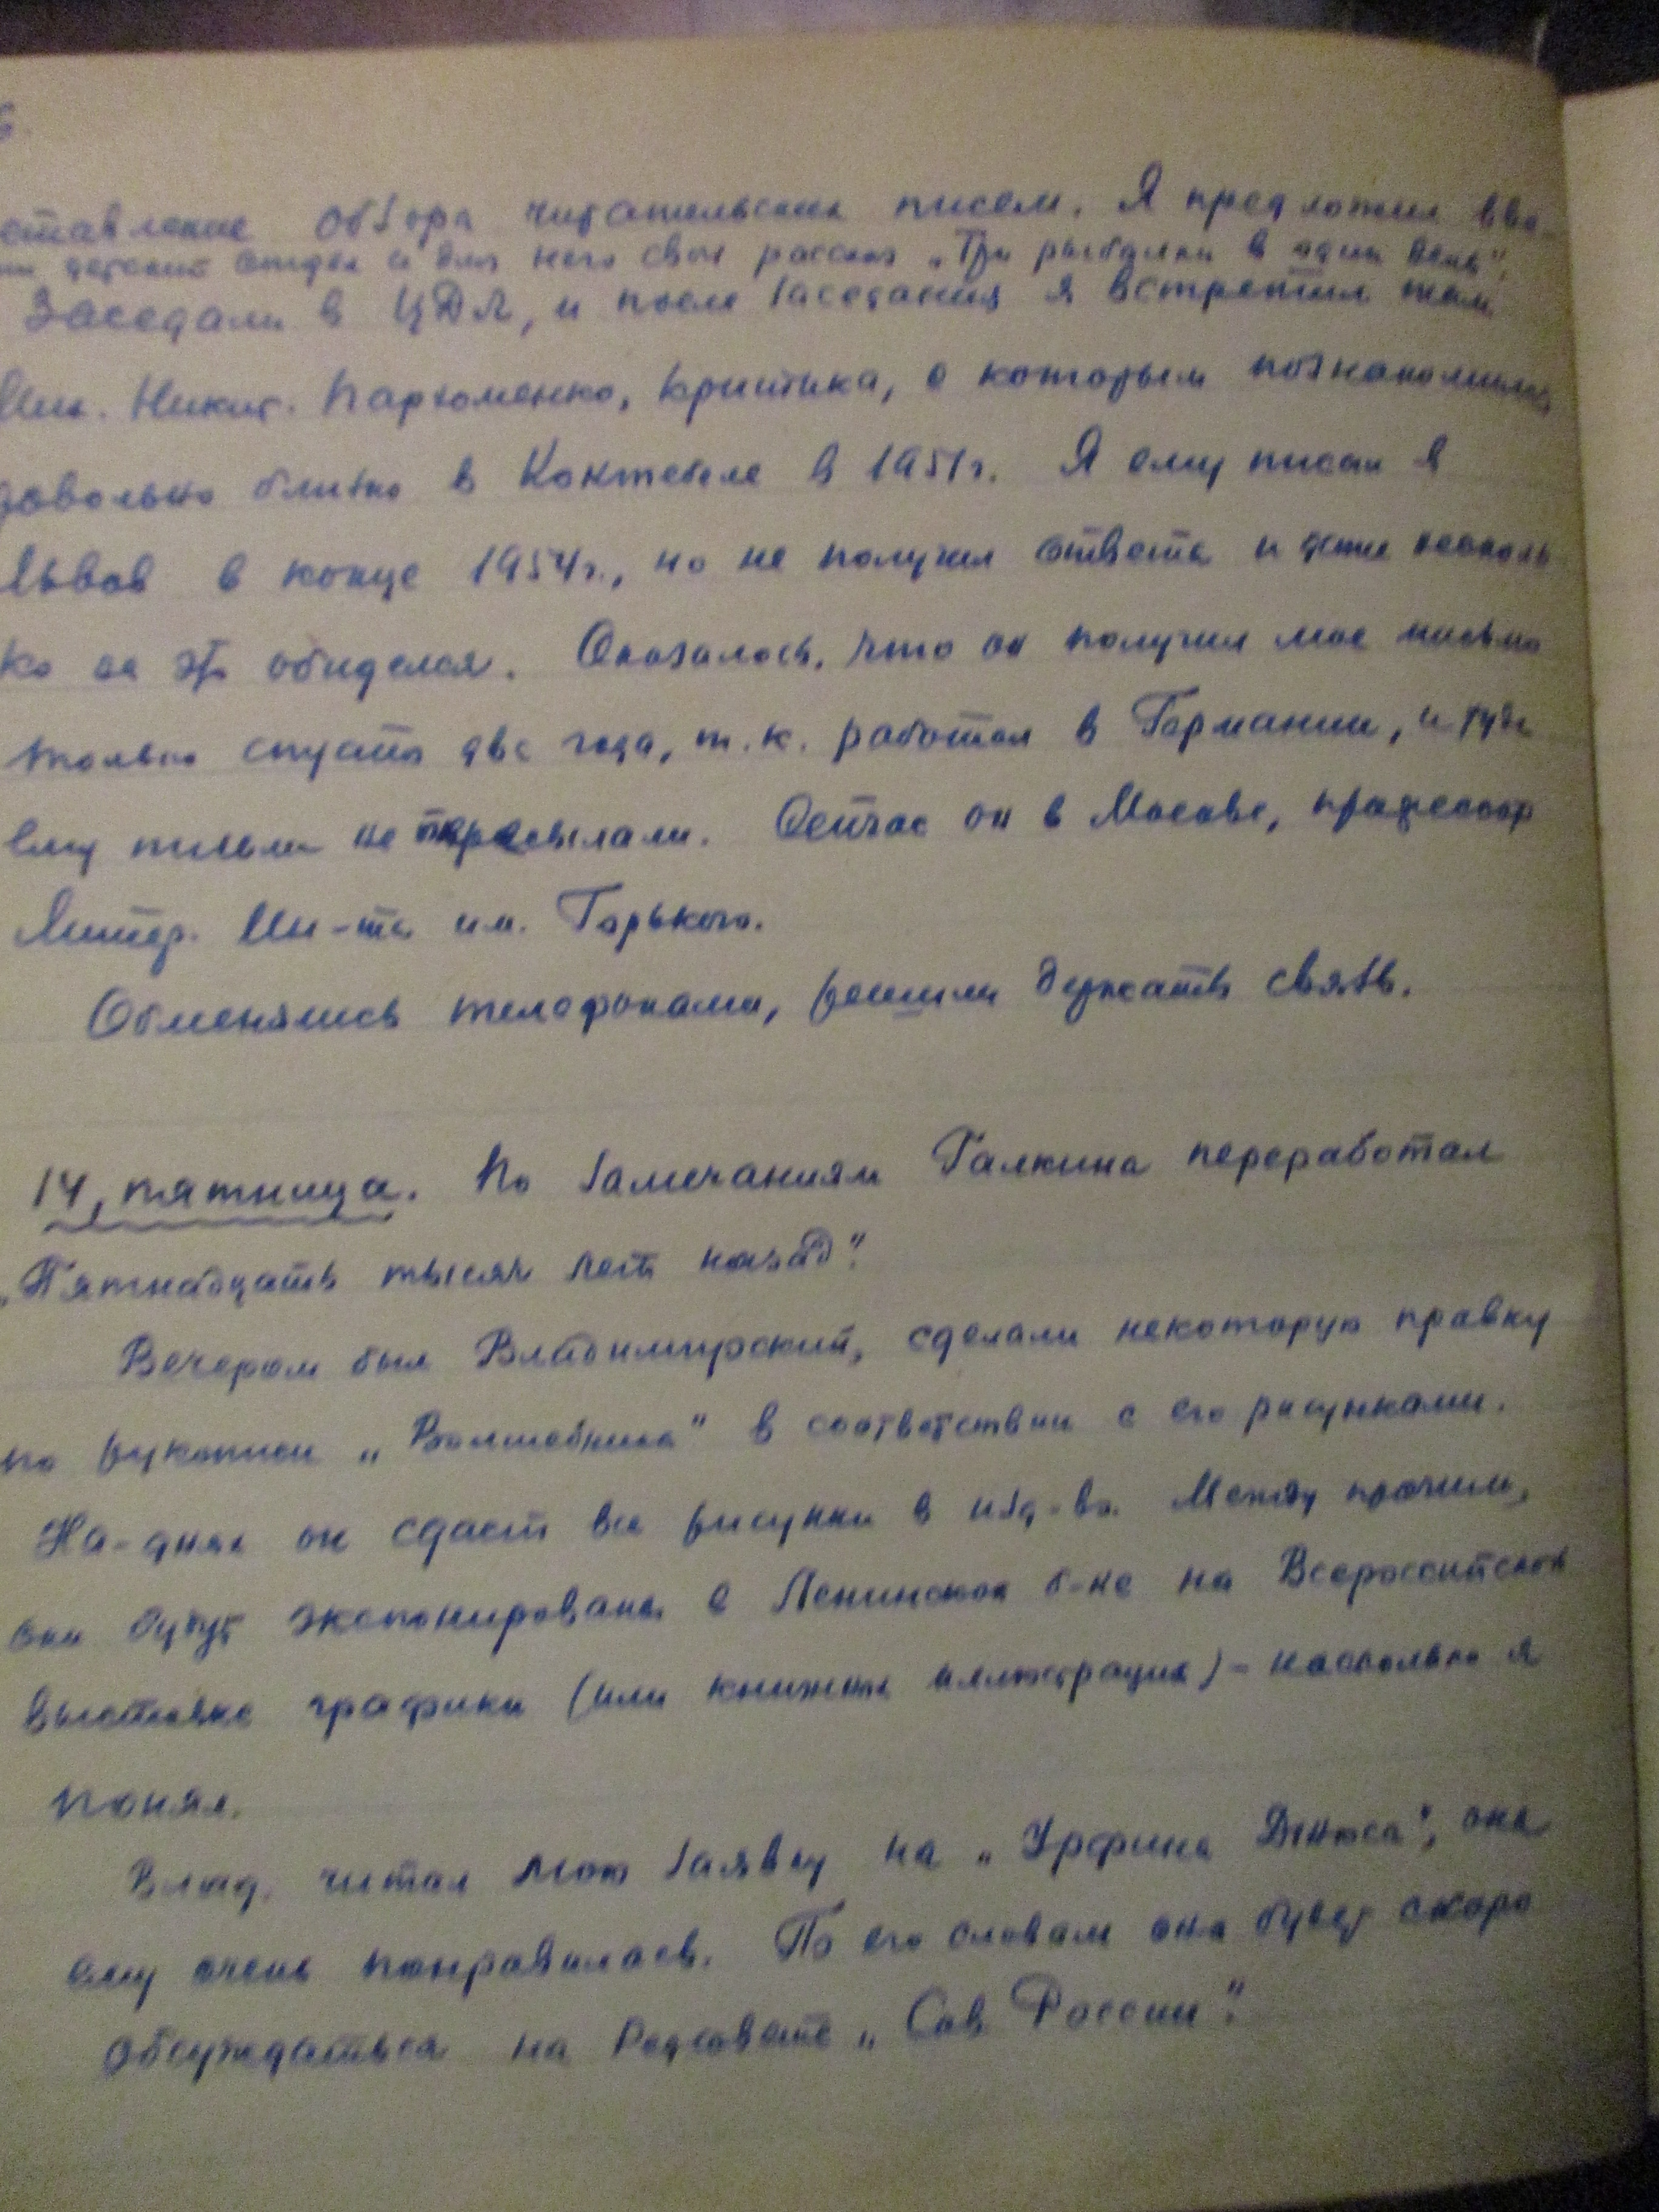 6.
ставление обзора читательских писем. Я предложил вве-
сти детский отдел и дал для него свой рассказ „Три рыбалки в один день".
Заседали в ЦДЛ, и после заседания я встретил там
Мих. Никит. Пархоменко, критика, с которым познакомились
довольно близко в Коктебеле в 1951г. Я ему писал в
Львов в конце 1954г., но не получил ответа и даже несколь
ко на это обиделся. Оказалось, что он получил мое письмо
только спустя два года, т.к. работал в Германии, и туда
ему письма не пересылали. Сейчас он в Москве, профессор
Литер. Ин-та им. Горького.
Обменялись телефонами, решили держать связь.
14, пятница. По замечаниям Галкина переработал
„Пятнадцать тысяч лет назад".
Вечером был Владимирский, сделали некоторую правку
по рукописи „Волшебника" в соответствии с его рисунками.
На-днях он сдаст все рисунки в изд-во. Между прочим,
они будут экспонированы в Ленинской б-ке на Всероссийской
выставке графики (или книжных иллюстраций) - насколько я
понял.
Влад. читал мою заявку на „Урфина Джюса", она
ему очень понравилась. По его словам она будет скоро
обсуждаться на Редсовете „Сов. России".